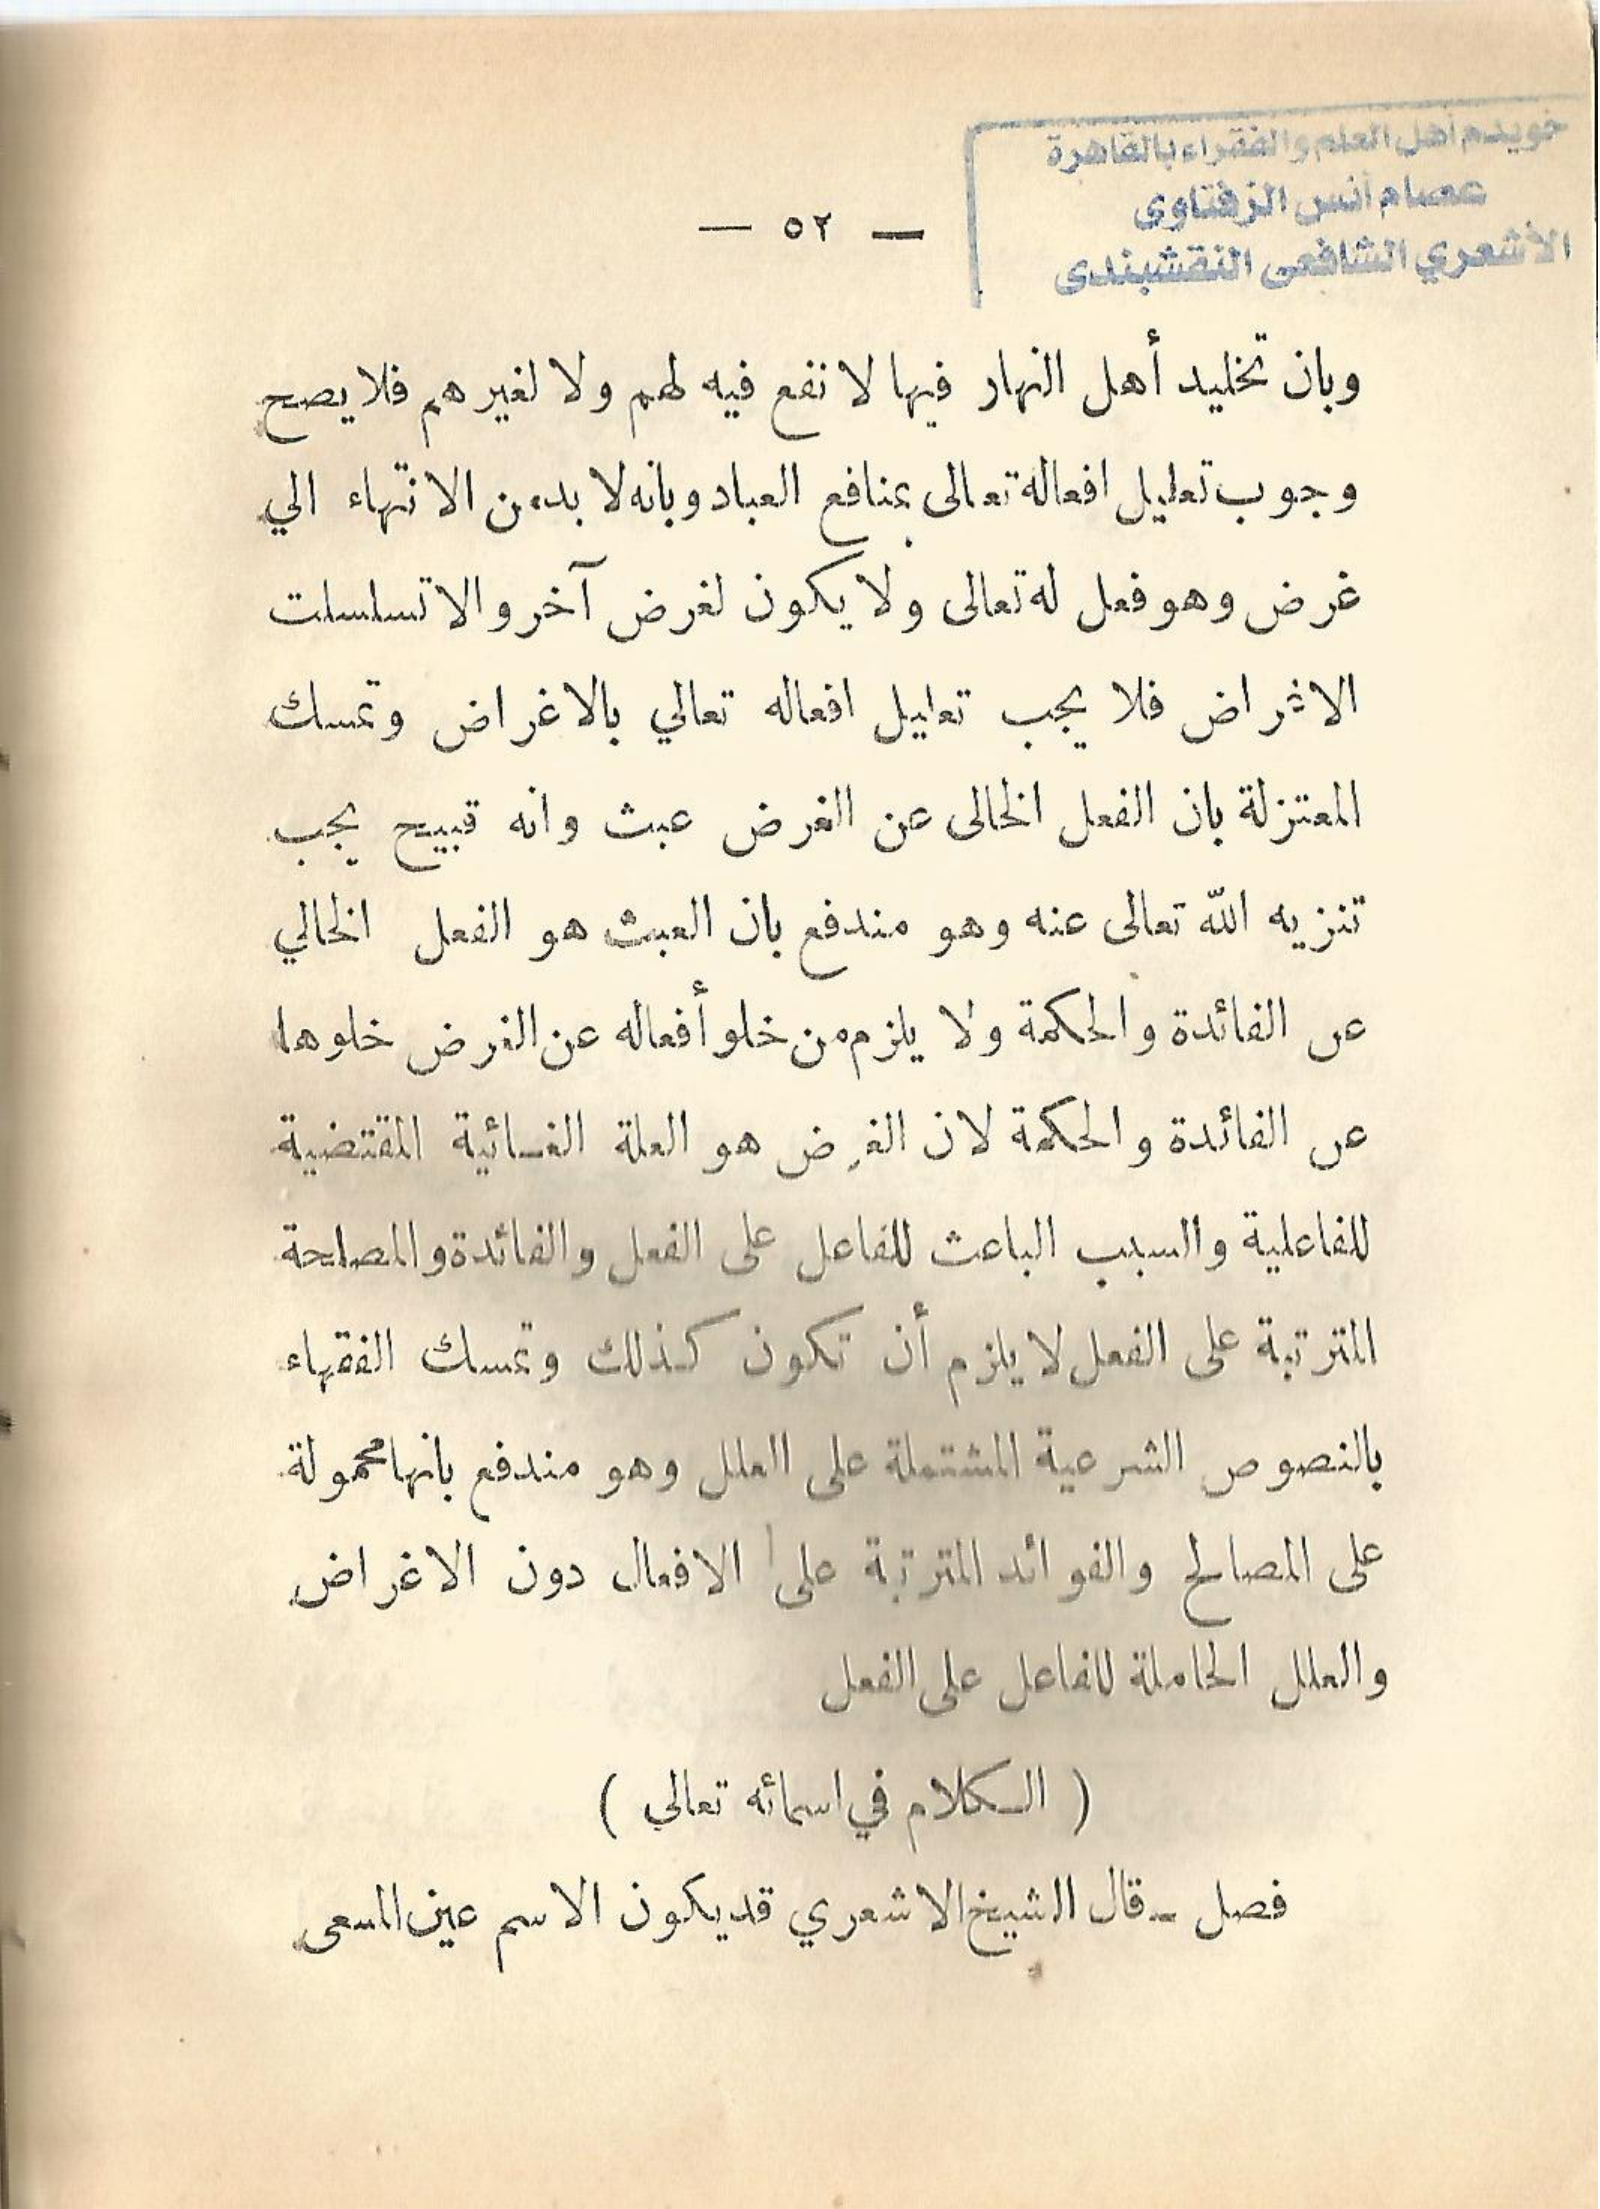 خويدم أهل العلم والفقراء بالقاهرة
عصام أنس الزفتاوى
الأشعري الشافعى النقشبندى
— ٥٢ —
وبان تخليد أهل النهار فيها لا نفع فيه لهم ولا لغيرهم فلا يصح
وجوب تعليل افعاله تعالى بمنافع العباد وبانه لا بد من الانتهاء الي
غرض وهو فعل له تعالى ولا يكون لغرض آخر والا تسلسلت
الاثراض فلا يجب تعليل افعاله تعالي بالاغراض وتمسك
المعتزلة بان الفعل الخالى عن الغرض عبث وانه قبيح يجب
تنزيه الله تعالى عنه وهو مندفع بان العبث هو الفعل الخالي
عن الفائدة والحكمة ولا يلزم من خلو أفعاله عن الغرض خلوها
عن الفائدة والحكمة لان الغرض هو العلة الغائية المقتضية
للفاعلية والسبب الباعث للفاعل على الفعل والفائدة والمصلحة
المترتبة على الفعل لا يلزم أن تكون كذلك وتمسك الفقهاء
بالنصوص الشرعية المشتملة على العلل وهو مندفع بانها محمولة
على المصالح والفوائد المترتبة على الافعال دون الاغراض
والعلل الحاملة للفاعل على الفعل
( الكلام في اسمائه تعالي )
فصل – قال الشيخ الاشعري قد يكون الاسم عين المسمى